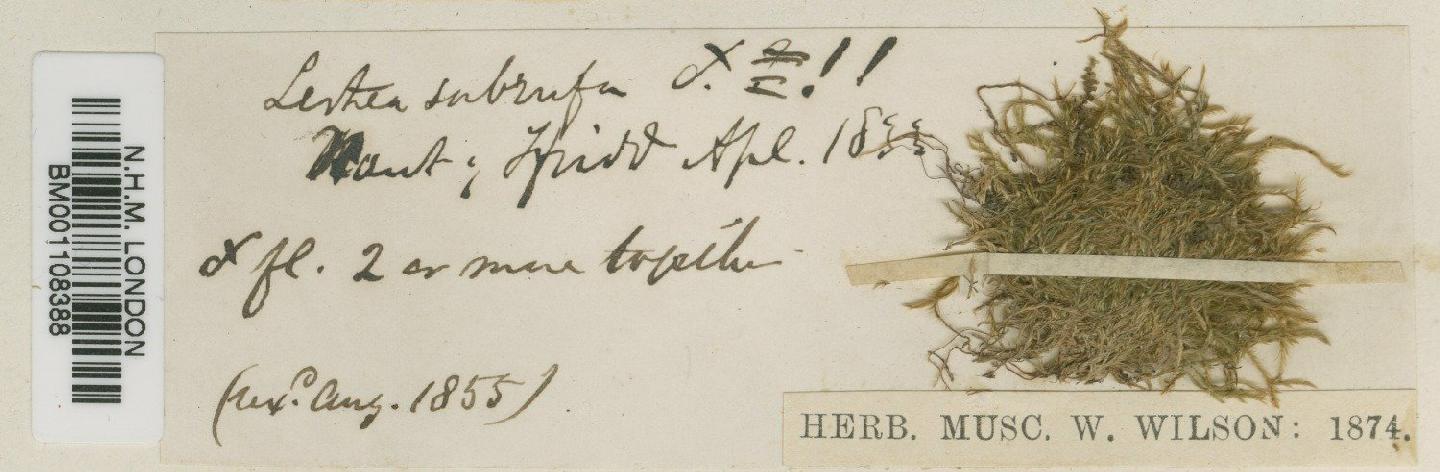 N.H.M. LONDON
BM001108388
Leskea subrufa ♂. !!
Nant y Ffridd Apl. 1833
♂ fl. 2 or more together
(Exd. Aug. 1855).
HERB. MUSC. W. WILSON: 1874.